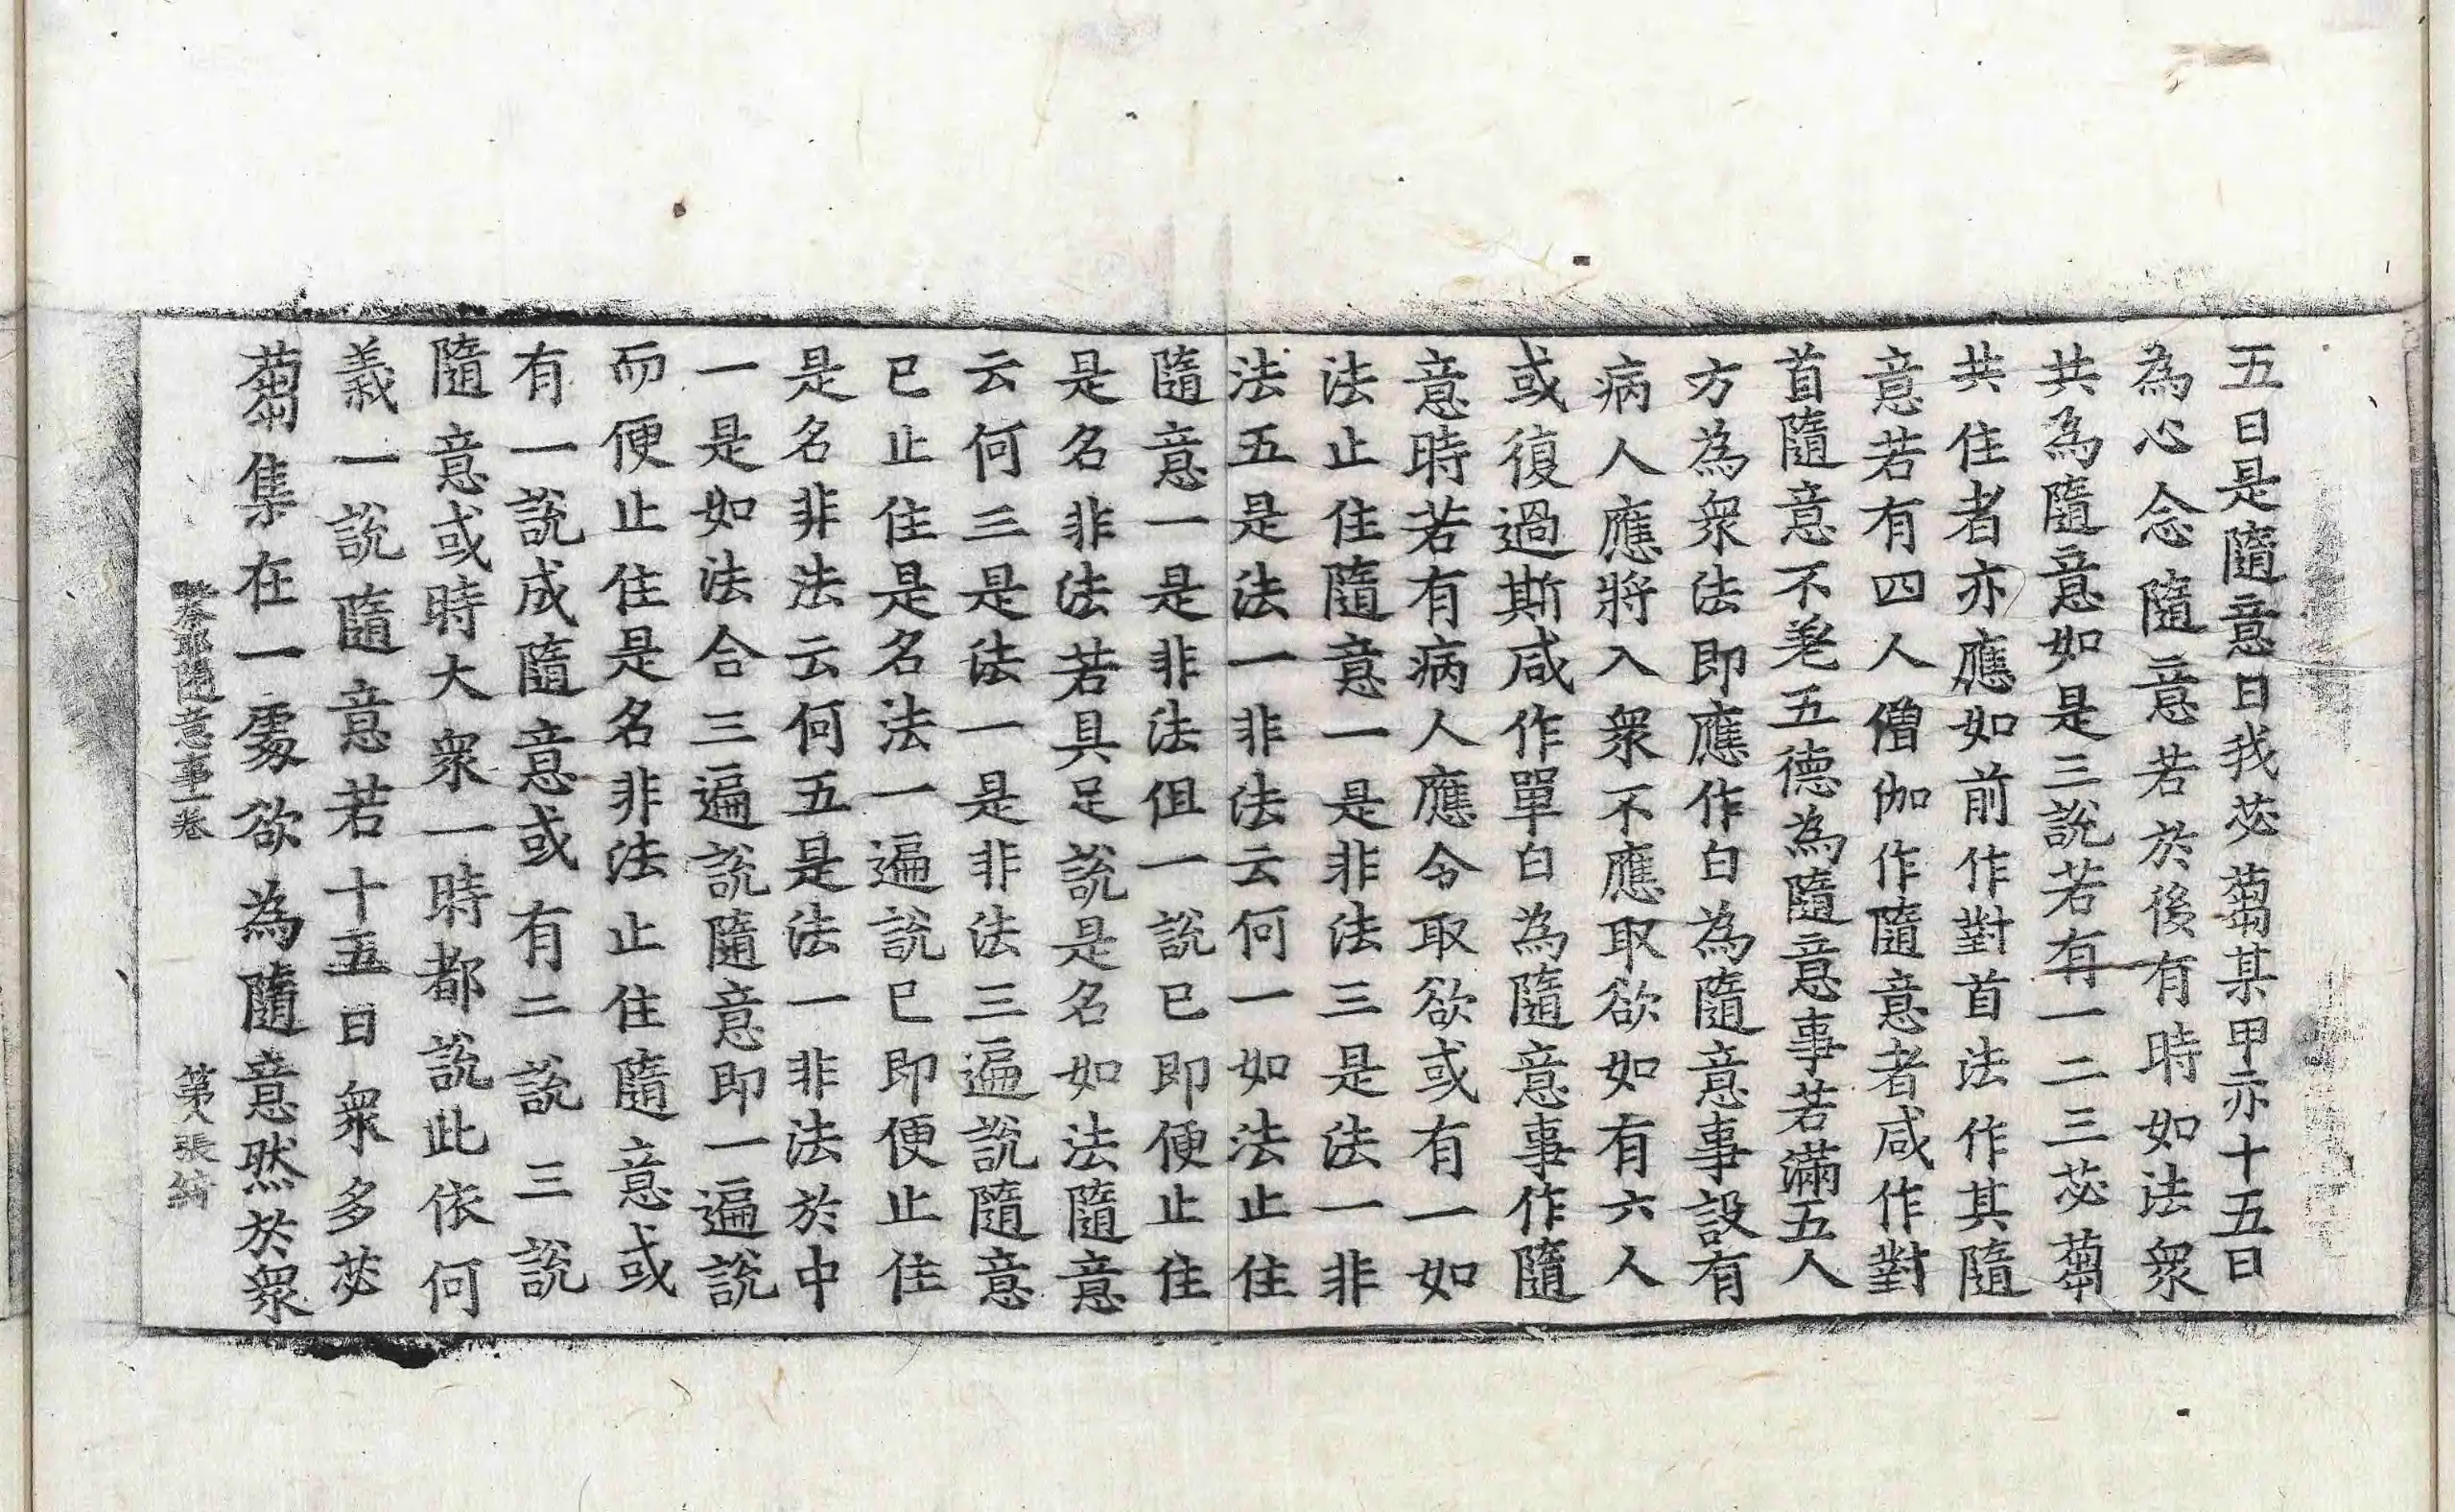 五日是隨意日我苾蒭某甲亦十五日
為心念隨意若於後有時如法衆
共為隨意如是三說若有一二三苾蒭
共住者亦應如前作對首法作其隨
意若有四人僧伽作隨意者咸作對
首隨意不差五德為隨意事若滿五人
方為衆法即應作白為隨意事設有
病人應將入衆不應取欲如有六人
或復過斯咸作單白為隨意事作隨
意時若有病人應令取欲或有一如
法止住隨意一是非法三是法一非
法五是法一非法云何一如法止住
隨意一是非法但一說已即便止住
是名非法若具足說是名如法隨意
云何三是法一是非法三遍說隨意
已止住是名法一遍說已即便止住
是名非法云何五是法一非法於中
一是如法合三遍說隨意即一遍說
而便止住是名非法止住隨意或
有一說成隨意或有二說三說
隨意或時大衆一時都說此依何
義一說隨意若十五日衆多苾
蒭集在一處欲為隨意然於衆
隨意事一卷 第八張